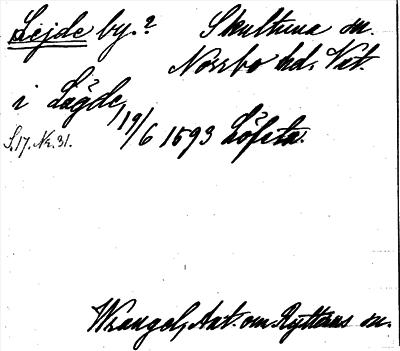 Lejde by.? Skultuna sn.
Norrbo hd. Vst.
i Lägde,
19/6 1593 Löfsta.
S. 17. Nr. 31.
Wrangel, Ant. om Rytterns sn.